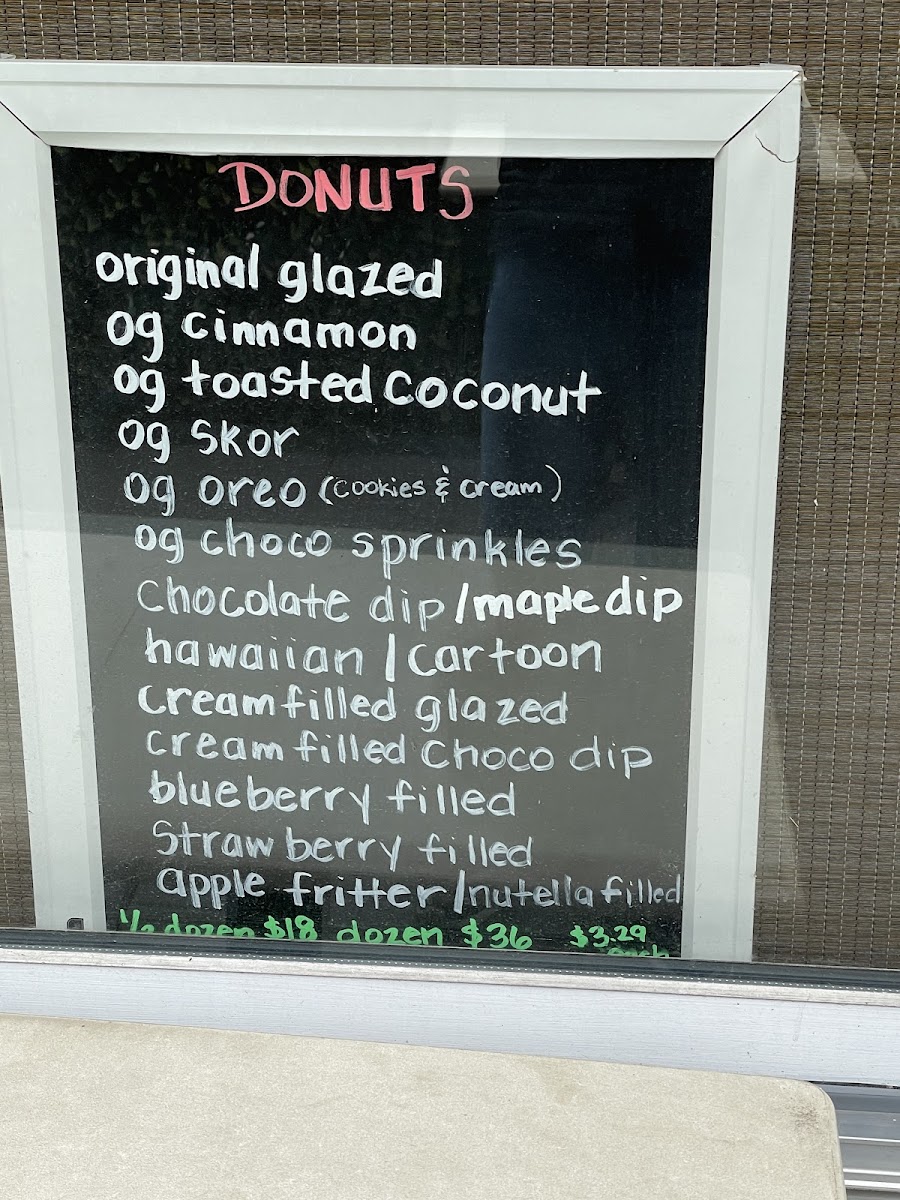 DONUTS
original glazed
og cinnamon
og toasted coconut
og skor
og oreo (cookies & cream)
og choco sprinkles
chocolate dip/maple dip
hawaiian/cartoon
cream filled glazed
cream filled choco dip
blueberry filled
strawberry filled
apple fritter/nutella filled
1/2 dozen $18 dozen $36 $3.29
each